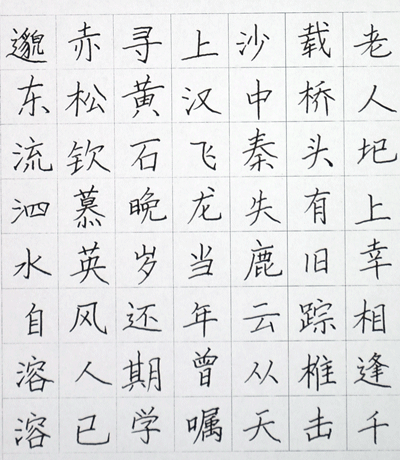 老人圯上幸相逢千
载桥头有旧踪椎击
沙中秦失鹿云从天
上汉飞龙当年曾嘱
寻黄石晚岁还期学
赤松钦慕英风人已
邈东流泗水自溶溶